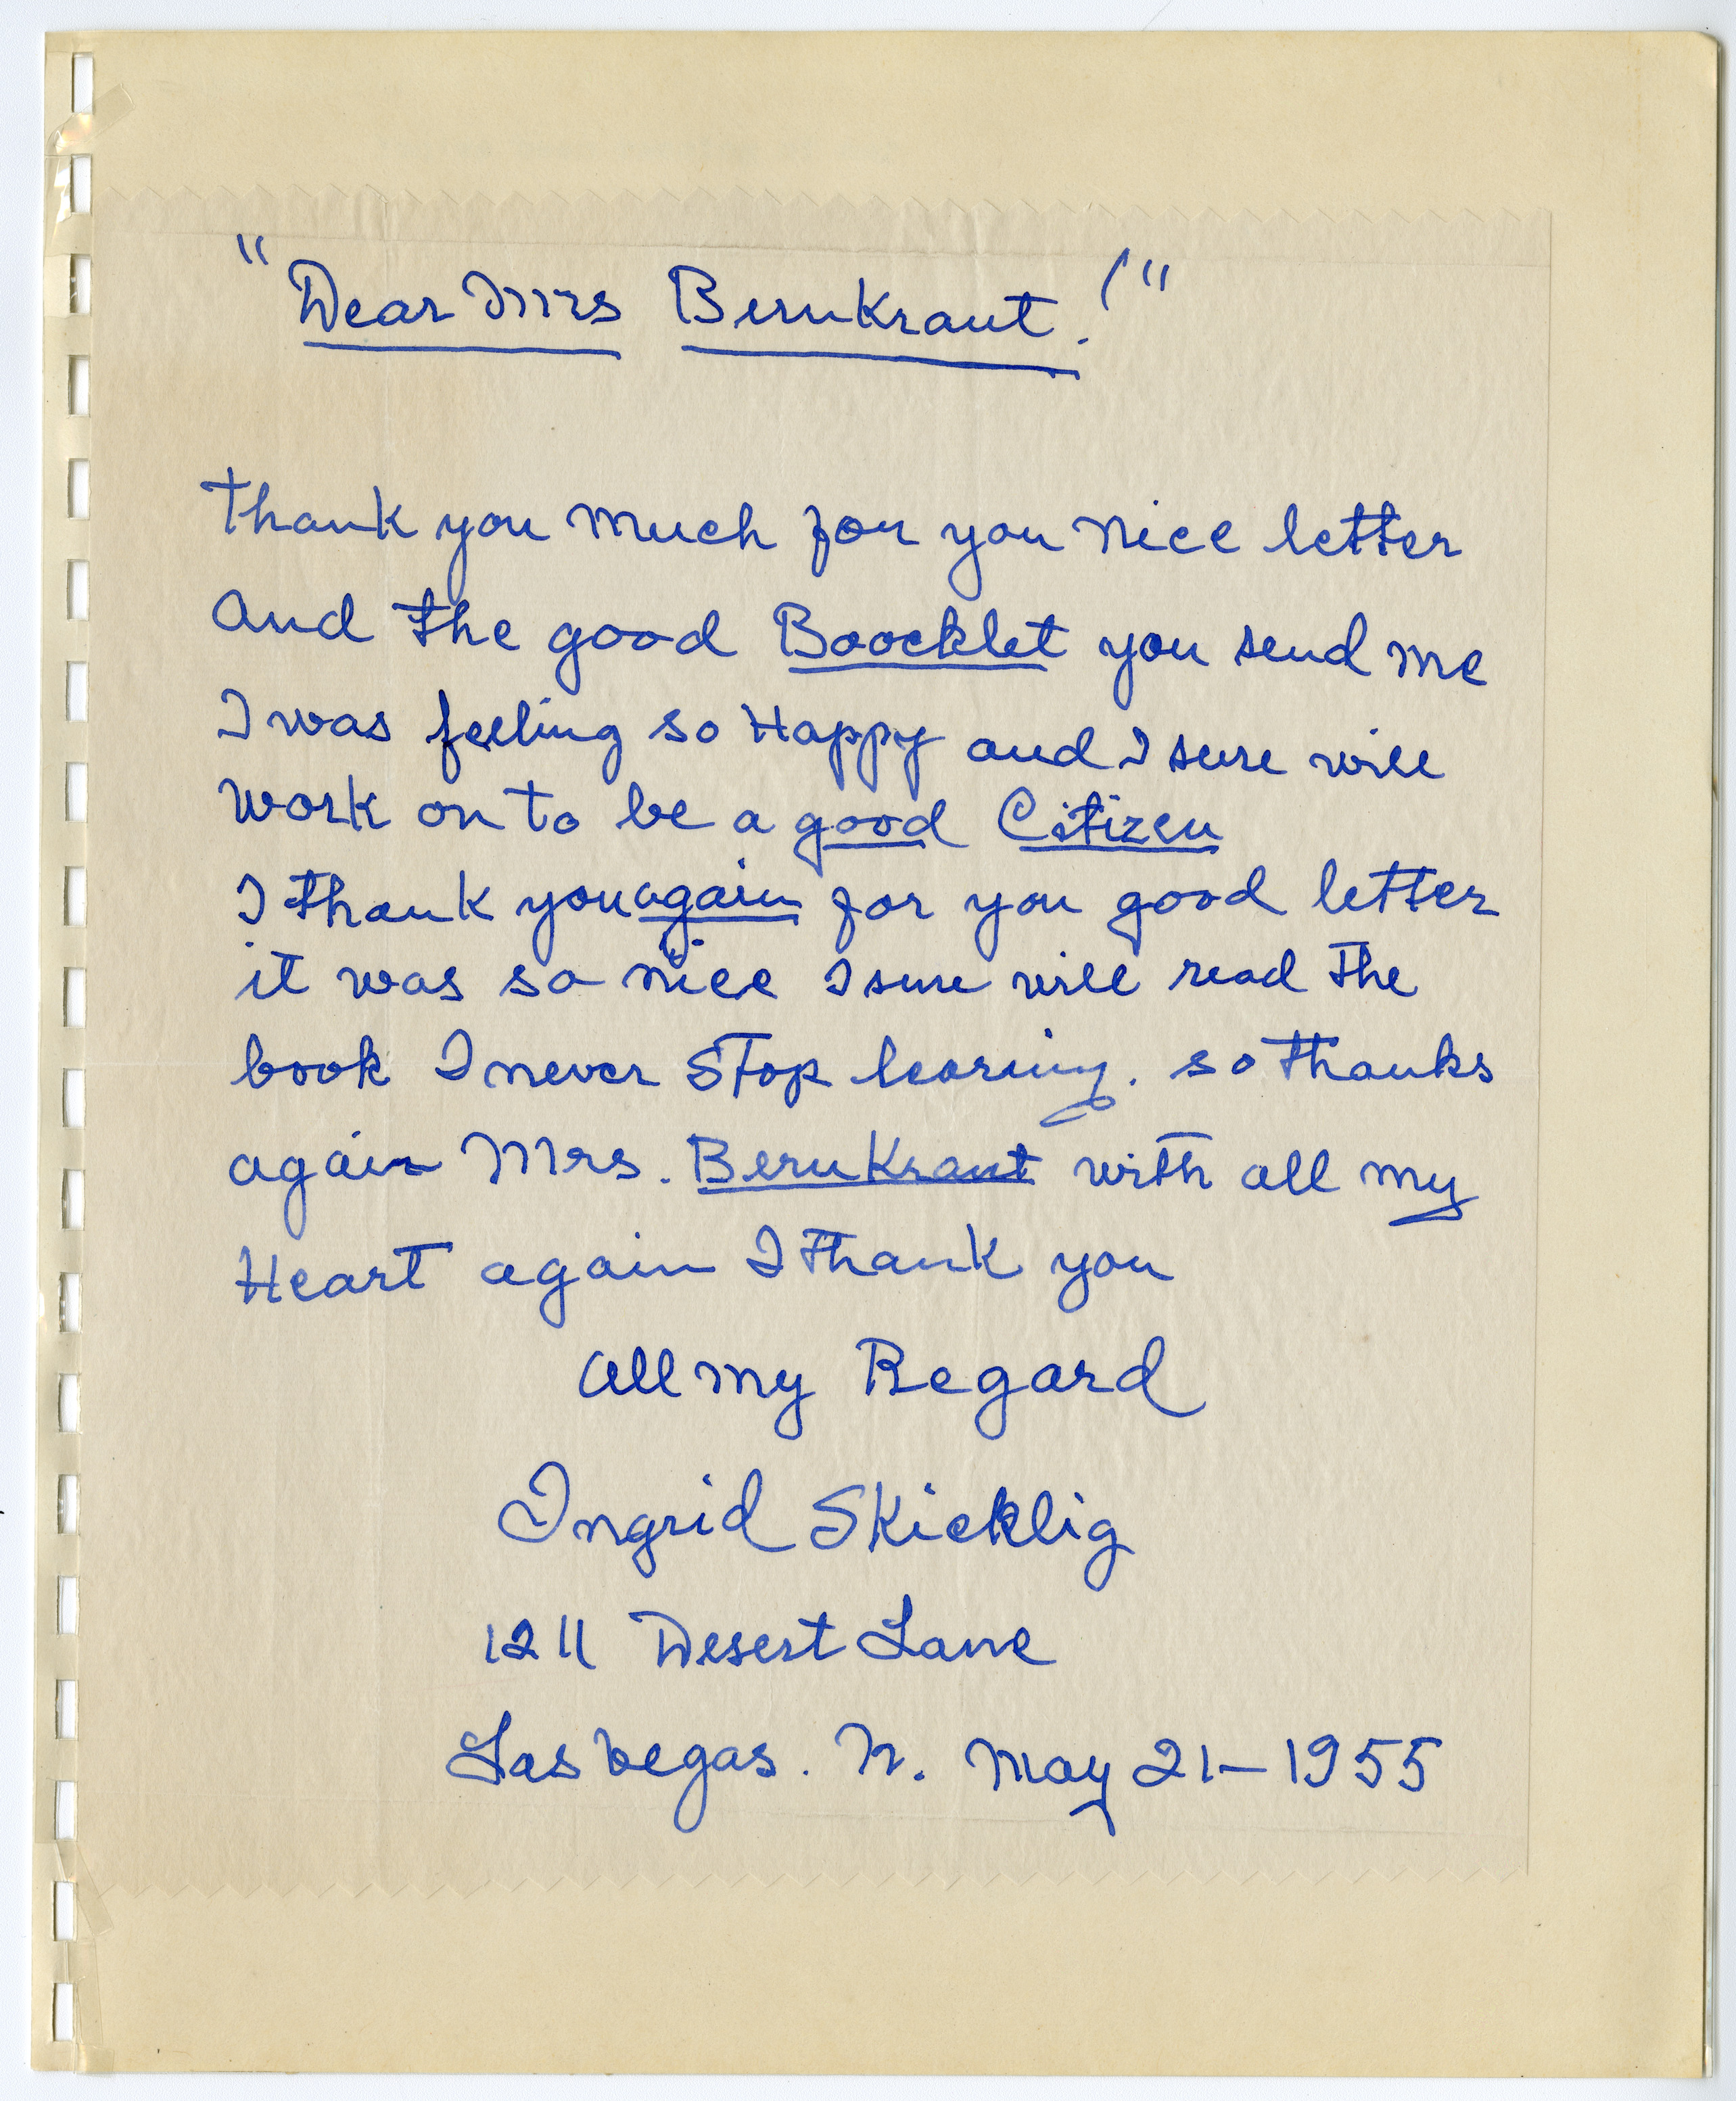 "Dear Mrs Bernkraut!"
Thank you much for you nice letter
and the good Boocklet you send me
I was feeling so Happy and I sure will
work on to be a good Citizen
I thank you again for you good letter
it was so nice I sure will read the
book I never Stop learing. so thanks
again Mrs. Bernkraut with all my
Heart again I thank you
all my Regard
Ingrid Skicklig
1211 Desert Lane
Las Vegas. N. May 21-1955